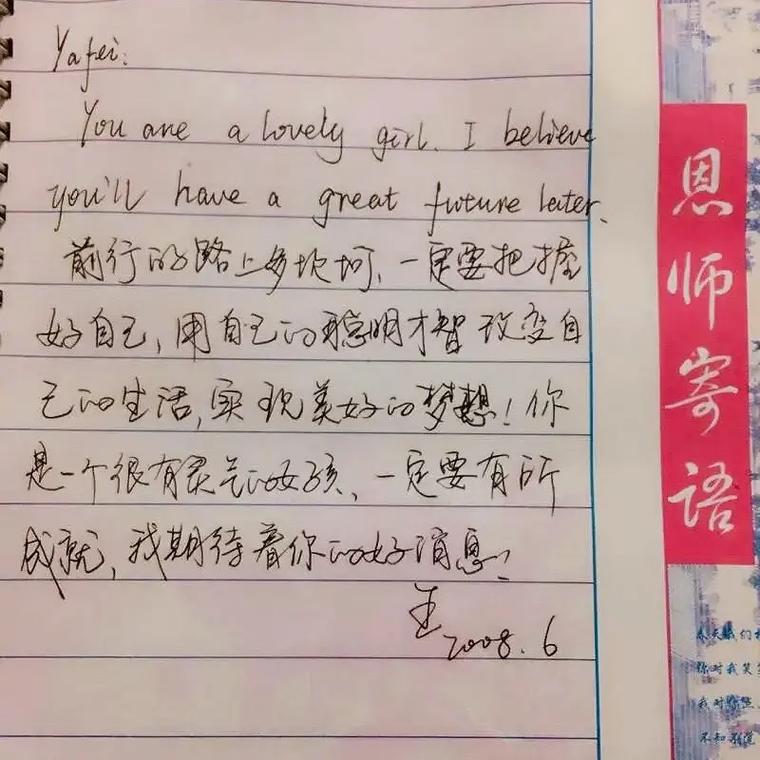 Yafei:
You are a lovely girl. I believe
you'll have a great future later.
前行的路上多坎坷、一定要把握
好自己,用自己的聪明才智改变自
己的生活,实现美好的梦想!你
是一个很有灵气的女孩、一定要有所
成就,我期待着你的好消息!
王
2008.6
恩师寄语
春天我们
你对我笑
我对你
不知